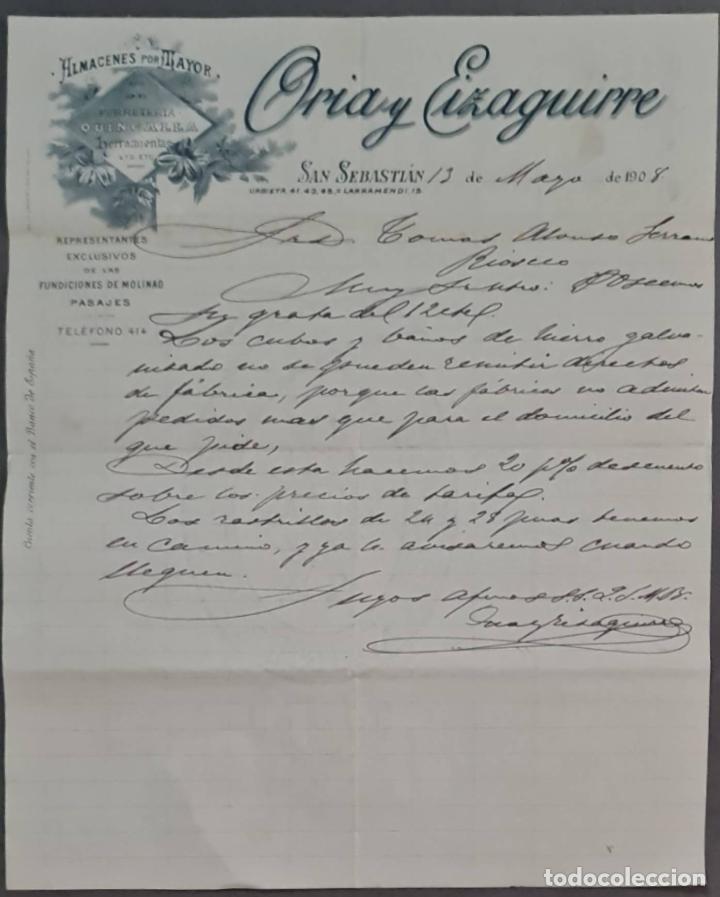 ALMACENES POR MAYOR
FERRETERÍA
QUINCALLA
Herramientas
ETC. ETC.
Oria y Eizaguirre
SAN SEBASTIÁN 13 de Mayo de 1908.
URBIETA 41, 43, 45, Y LARRAMENDI, 15
REPRESENTANTES
EXCLUSIVOS
DE LAS
FUNDICIONES DE MOLINAO
PASAJES
TELÉFONO 414
Cuenta corriente con el Banco de España
Srd. Tomas Alonso Serrano
Rioseco
Muy Sr. nstro: Poseemos
su grata del 12 del.
Los cubos y baños de hierro galva-
nisado no se pueden remitir directos
de fábrica, porque las fábricas no admiten
pedidos mas que para el domicilio del
que pide,
Desde esta hacemos 20 p% descuento
sobre los precios de tarifa.
Los rastrillos de 24 y 28 puas tenemos
en camino, y ya le avisaremos cuando
lleguen.
Suyos afmos S.S. Q.S.M.B.
Oria y Eizaguirre
todocoleccion.net